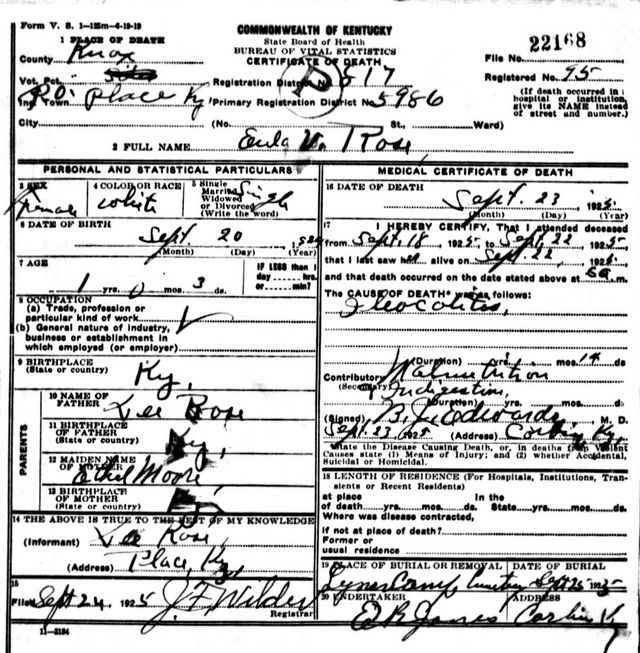 Form V. S. 1—125m—6-19-19
COMMONWEALTH OF KENTUCKY
State Board of Health
BUREAU OF VITAL STATISTICS
CERTIFICATE OF DEATH
1 PLACE OF DEATH
County Knox
File No. 22168
Vot. Pct.
Registration District No. 517
Registered No. 95
P.O. Place Ky
Inc. Town
Primary Registration District No. 5986
(If death occurred in a hospital or institution, give its NAME instead of street and number.)
City
(No. St., Ward)
2 FULL NAME Eula V. Rose
PERSONAL AND STATISTICAL PARTICULARS
3 SEX
Female
4 COLOR OR RACE
White
5 Single
Married
Widowed
or Divorced
(Write the word)
Single
6 DATE OF BIRTH
Sept. 20, 1924
(Month) (Day) (Year)
7 AGE
1 yrs. 0 mos. 3 ds.
IF LESS than 1 day....hrs. or....min?
8 OCCUPATION
(a) Trade, profession or particular kind of work
(b) General nature of industry, business or establishment in which employed (or employer)
9 BIRTHPLACE
(State or country)
Ky,
PARENTS
10 NAME OF FATHER
Lee Rose
11 BIRTHPLACE OF FATHER
(State or country)
Ky,
12 MAIDEN NAME OF MOTHER
Ethel Moore
13 BIRTHPLACE OF MOTHER
(State or country)
14 THE ABOVE IS TRUE TO THE BEST OF MY KNOWLEDGE
(Informant) Lee Rose,
(Address) Place, Ky,
15
Filed Sept 24, 1925 J. F. Wilder
Registrar
11—3184
MEDICAL CERTIFICATE OF DEATH
16 DATE OF DEATH
Sept. 23, 1925
(Month) (Day) (Year)
17 I HEREBY CERTIFY, That I attended deceased
from Sept. 18, 1925, to Sept. 22, 1925
that I last saw her alive on Sept. 22, 1925
and that death occurred on the date stated above at 6a m.
The CAUSE OF DEATH* was as follows:
Ileocolitis,
(Duration) yrs. mos. 14 ds.
Contributory Malnutrition
(Secondary) Indigestion,
(Duration) yrs. mos. ds.
(Signed) B. J. Edwards, M. D.
Sept. 23, 1925 (Address) Corbin, Ky,
*State the Disease Causing Death, or, in deaths from Violent Causes state (1) Means of Injury; and (2) whether Accidental, Suicidal or Homicidal.
18 LENGTH OF RESIDENCE (For Hospitals, Institutions, Transients or Recent Residents)
At place of death....yrs....mos....ds. In the State....yrs....mos....ds.
Where was disease contracted,
if not at place of death?
Former or usual residence
19 PLACE OF BURIAL OR REMOVAL
DATE OF BURIAL
Lynn Camp Cemetery Sept 25 1925
20 UNDERTAKER
ADDRESS
Corbin Ky